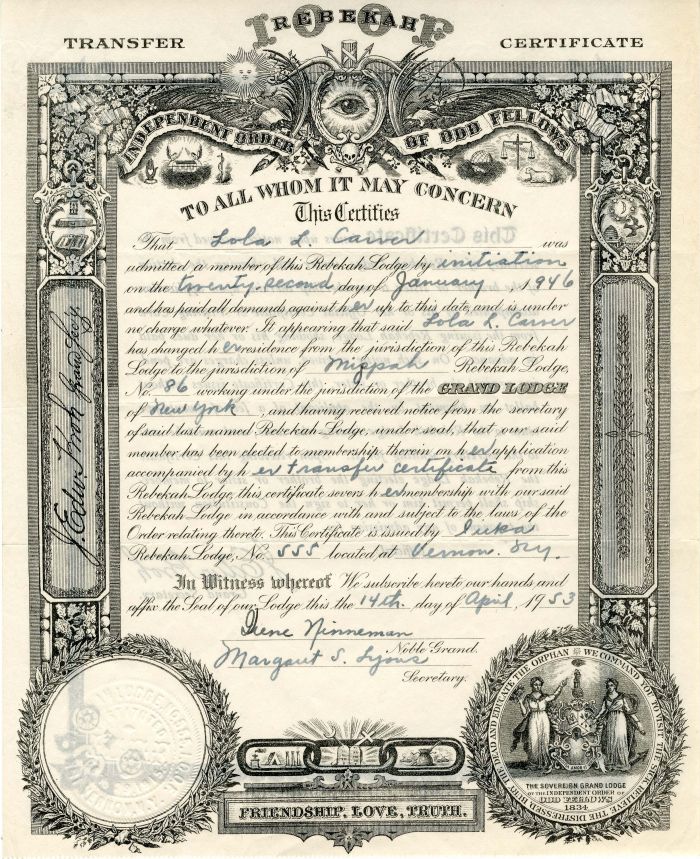 REBEKAH
I O O F
TRANSFER CERTIFICATE
INDEPENDENT ORDER OF ODD FELLOWS
TO ALL WHOM IT MAY CONCERN
This Certifies
That Lola L. Carver was
admitted a member of this Rebekah Lodge by initiation
on the twenty-second day of January 1946
and has paid all demands against her up to this date, and is under
no charge whatever. It appearing that said Lola L. Carver
has changed her residence from the jurisdiction of this Rebekah
Lodge to the jurisdiction of Mizpah Rebekah Lodge,
No. 86 working under the jurisdiction of the GRAND LODGE
of New York, and having received notice from the secretary
of said last named Rebekah Lodge, under seal, that our said
member has been elected to membership therein on her application
accompanied by her transfer certificate from this
Rebekah Lodge, this certificate severs her membership with our said
Rebekah Lodge in accordance with and subject to the laws of the
Order relating thereto. This Certificate is issued by Iuka
Rebekah Lodge, No. 555 located at Vernon. N.y.
In Witness whereof We subscribe hereto our hands and
affix the Seal of our Lodge this the 14th day of April, 1953
Irene Ninneman
Noble Grand.
Margaret S. Lyons
Secretary.
J. Edw. Krok Grand Secy
WE COMMAND YOU TO VISIT THE SICK RELIEVE THE DISTRESSED BURY THE DEAD AND EDUCATE THE ORPHAN
THE SOVEREIGN GRAND LODGE
OF THE INDEPENDENT ORDER OF
ODD FELLOWS
1834
FRIENDSHIP, LOVE, TRUTH.